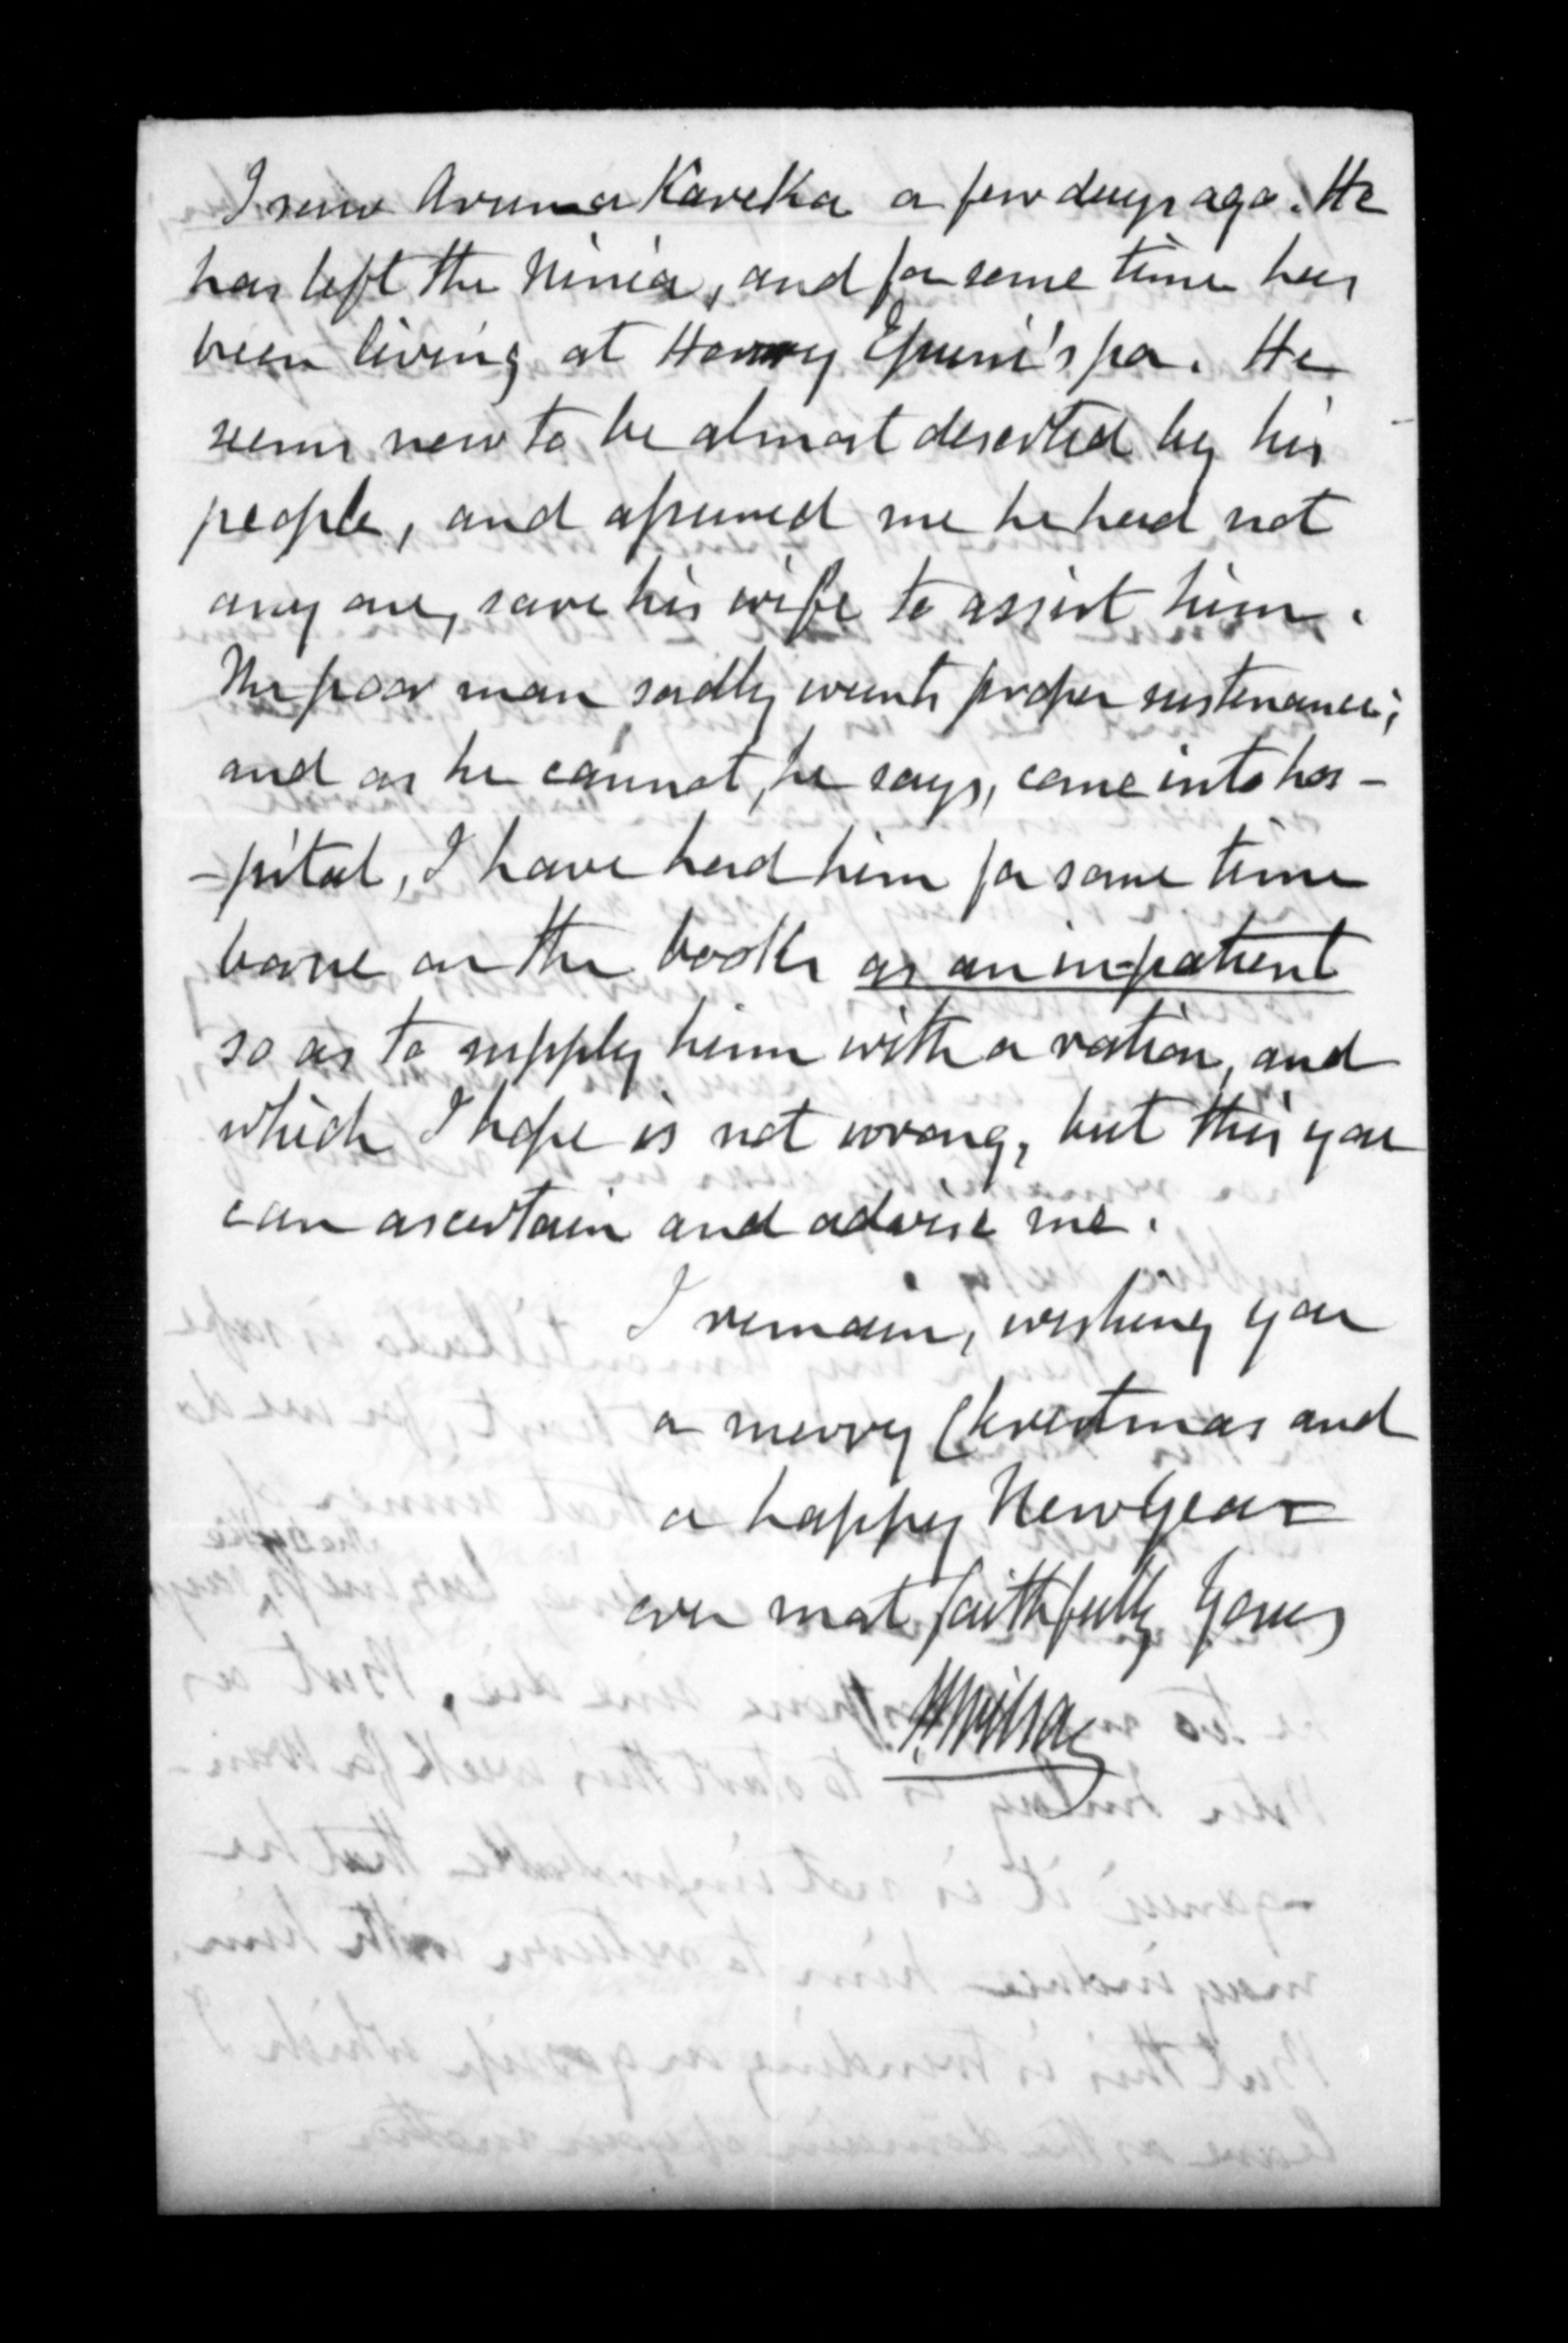 I saw Aruma Kareka a few days ago. He
has left the Ninia, and for some time has
been living at Honey Epuni's pa. He
seems now to be almost deserted by his
people, and assured me he had not
any one, save his wife to assist him.
The poor man sadly wants proper sustenance;
and as he cannot, he says, come into hos-
-pital, I have had him for some time
borne on the books as an in-patient
so as to supply him with a ration, and
which I hope is not wrong, but this you
can ascertain and advise me.
I remain, wishing you
a merry Christmas and
a happy New Year
ever most faithfully Yours